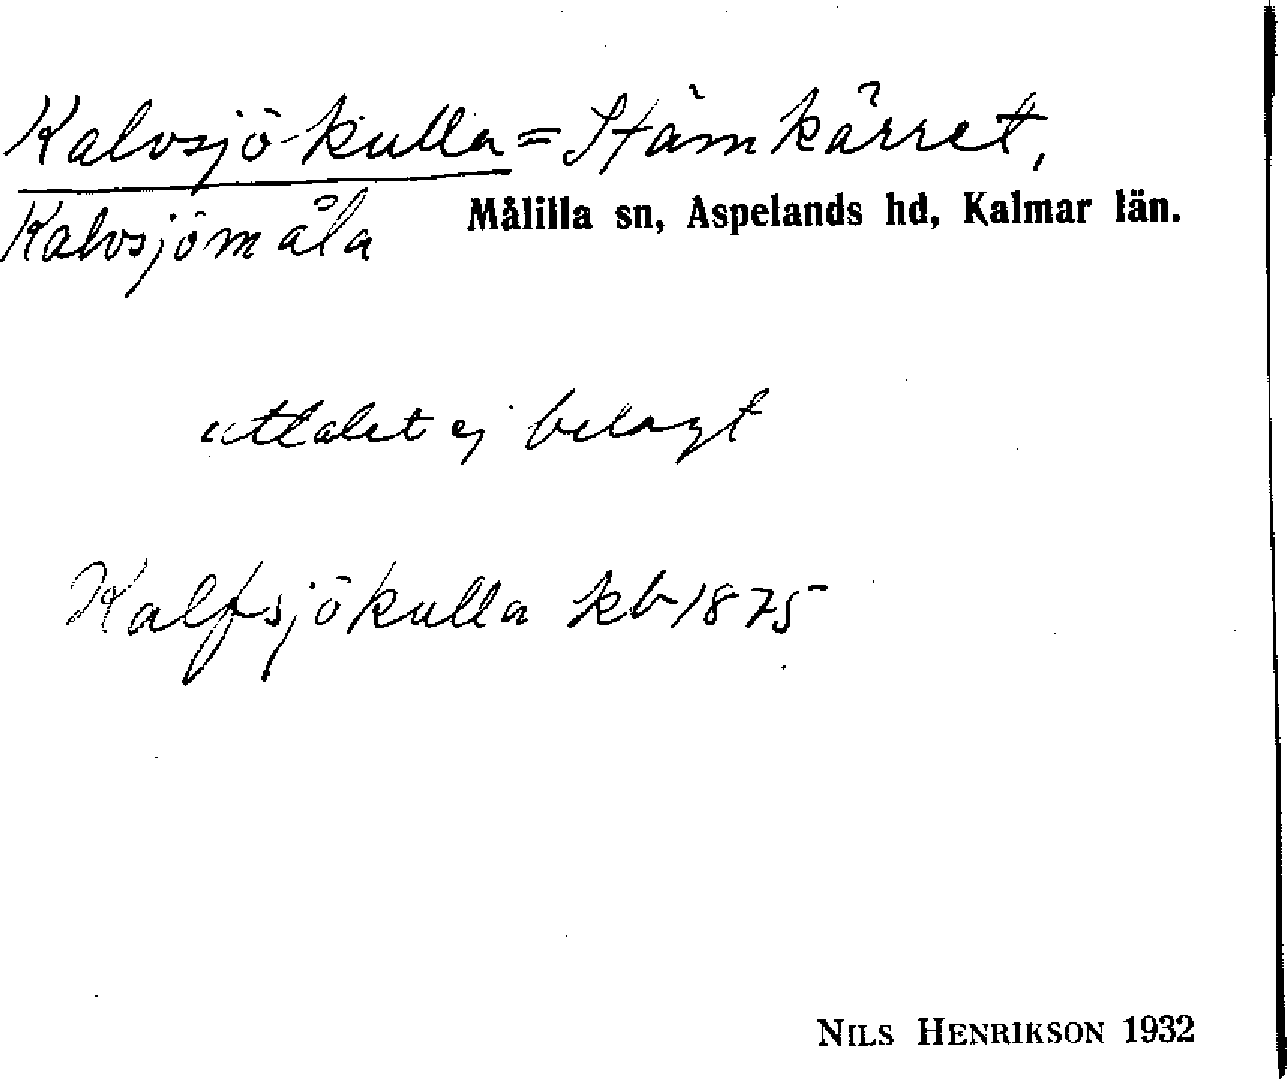 Kalvsjökulla = Stämkärret,
Kalvsjömåla
Målilla sn, Aspelands hd, Kalmar län.
uttalet ej belagt
Kalfsjökulla kb 1875
NILS HENRIKSON 1932